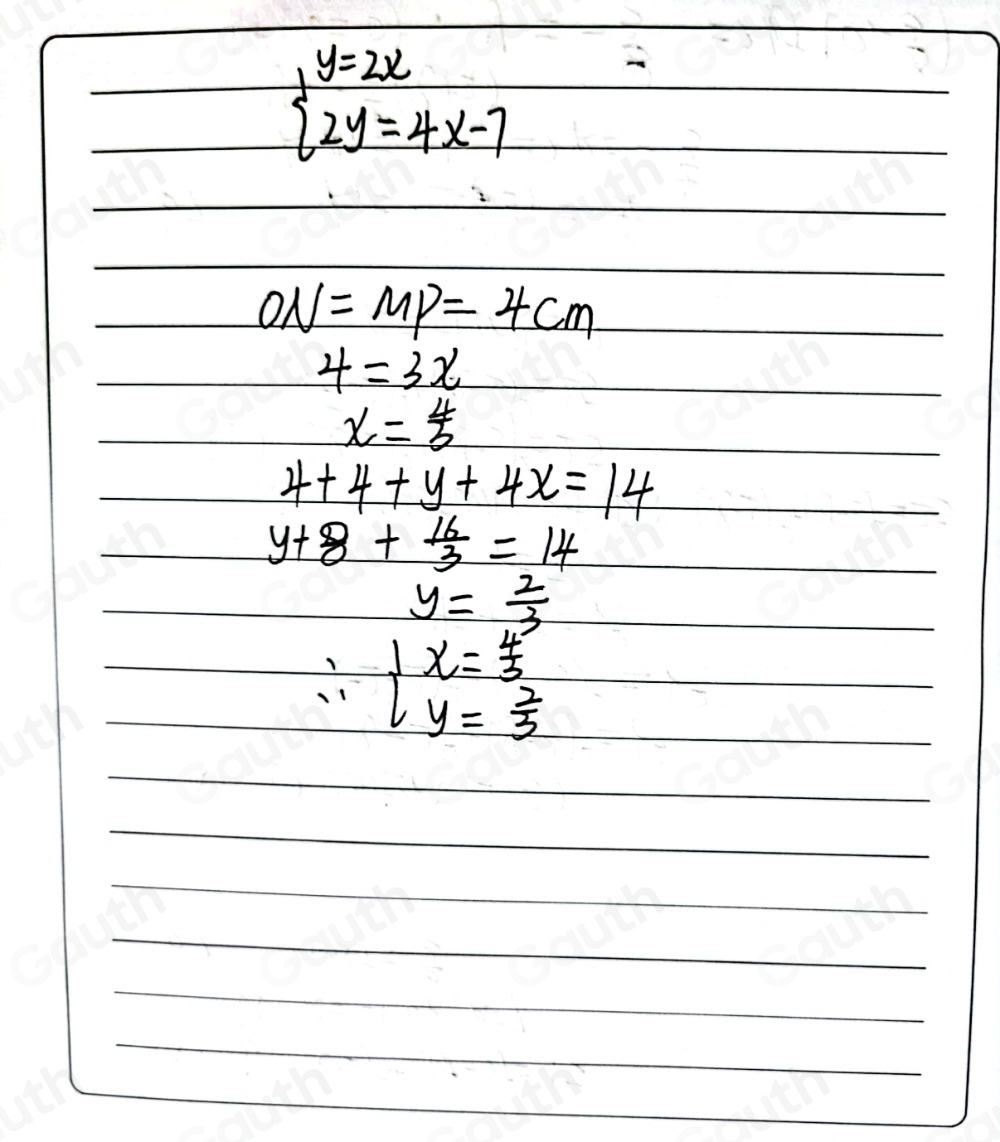 { y=2x
2y=4x-7
ON = MP = 4cm
4=3x
x=4/3
4+4+y+4x=14
y+8+16/3=14
y=2/3
∴ { x=4/3
y=2/3
Gauth